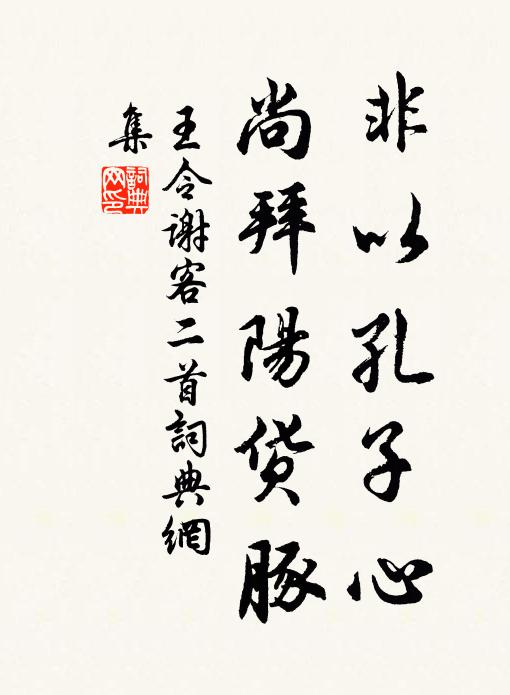 非以孔子心
尚拜陽貨豚
王令謝客二首詞典網
集
詞典
网印